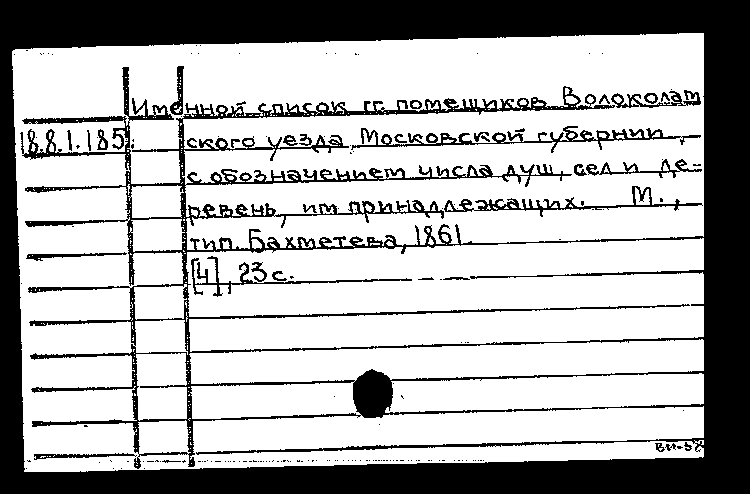 Именной список гг. помещиков Волоколам
18.8.1.185. ского уезда Московской губернии,
с обозначением числа душ, сел и де-
ревень, им принадлежащих. М.,
тип. Бахметева, 1861.
[4], 23 с.